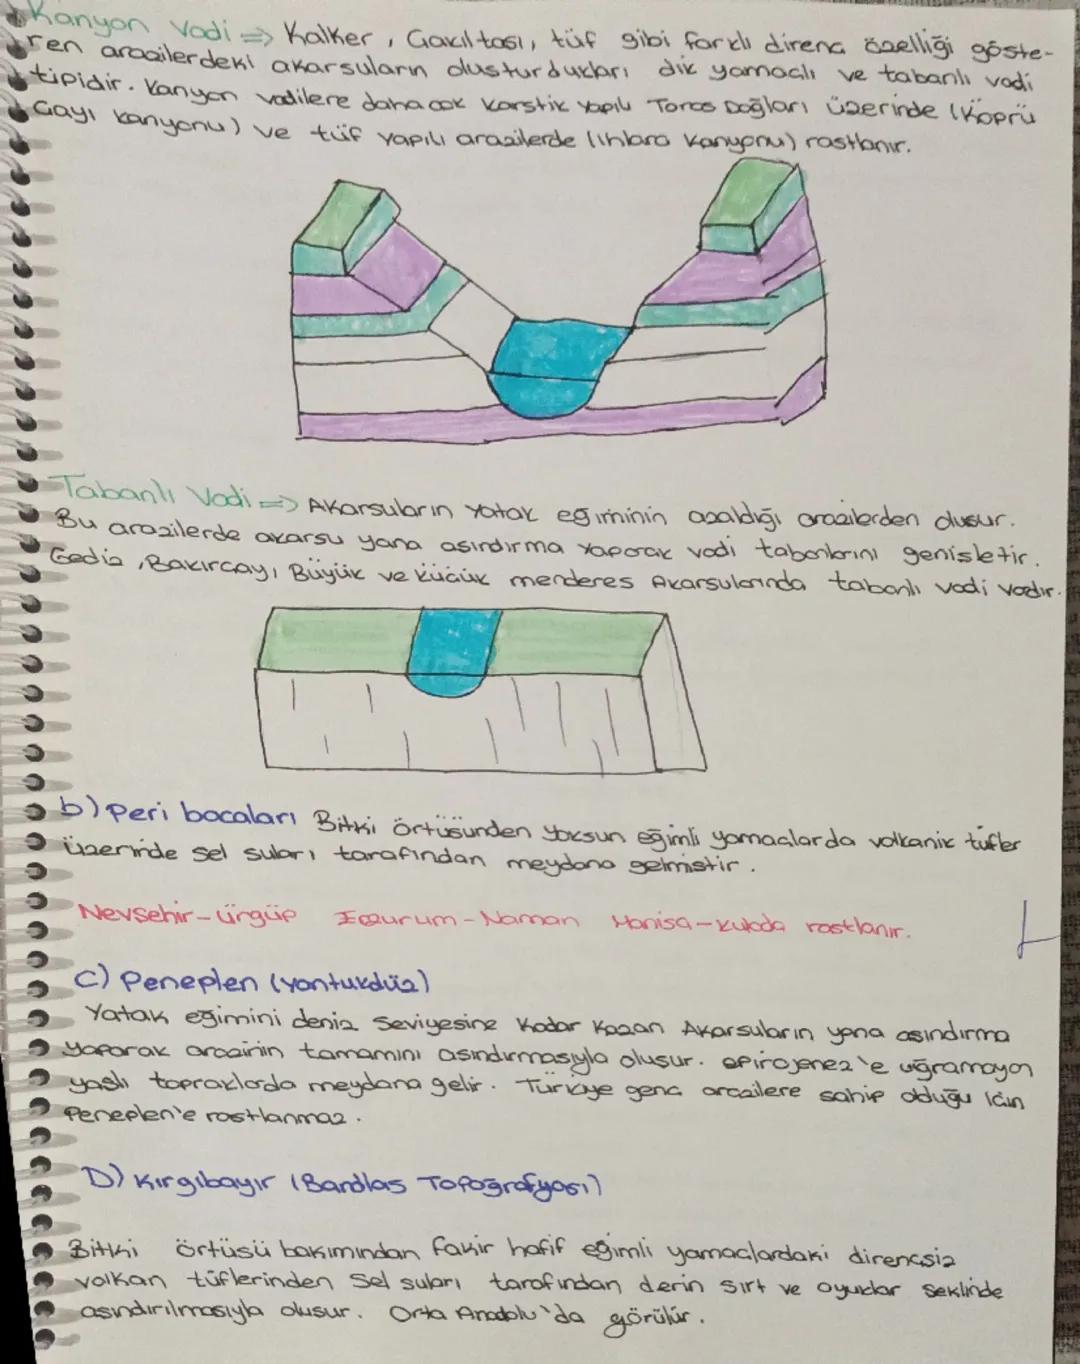 Kanyon Vadi => Kalker, Çakıltaşı, tüf gibi farklı direnç özelliği göste-
ren arazilerdeki akarsuların oluşturdukları dik yamaçlı ve tabanlı vadi
tipidir. Kanyon vadilere daha çok karstik yapılı Toros Dağları üzerinde (Köprü
Çayı kanyonu) ve tüf yapılı arazilerde (Ihlara Kanyonu) rastlanır.
Tabanlı Vadi => Akarsuların yatak eğiminin azaldığı arazilerden oluşur.
Bu arazilerde akarsu yana aşındırma yaparak vadi tabanlarını genişletir.
Gediz, Bakırçay, Büyük ve küçük menderes Akarsularında tabanlı vadi vardır.
b) Peri bacaları Bitki örtüsünden yoksun eğimli yamaçlarda volkanik tüfler
üzerinde sel suları tarafından meydana gelmiştir.
Nevşehir-Ürgüp Erzurum-Narman Manisa-kulada rastlanır.
C) Peneplen (yontukdüz)
Yatak eğimini deniz seviyesine kadar kazan Akarsuların yana aşındırma
yaparak arazinin tamamını aşındırmasıyla oluşur. epirojenez'e uğramayan
yaşlı topraklarda meydana gelir. Türkiye genç arazilere sahip olduğu için
Peneplen'e rastlanmaz.
D) Kırgıbayır (Bandlas Topoğrafyası)
Bitki örtüsü bakımından fakir hafif eğimli yamaçlardaki dirençsiz
volkan tüflerinden Sel suları tarafından derin sırt ve oyuklar şeklinde
aşındırılmasıyla oluşur. Orta Anadolu'da görülür.